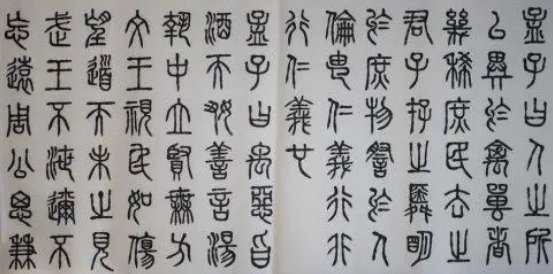 孟子曰人之所
以異於禽獸者
幾希庶民去之
君子存之舜明
於庶物察於人
倫由仁義行非
行仁義也
孟子曰禹惡旨
酒而好善言湯
執中立賢無方
文王視民如傷
望道而未之見
武王不泄邇不
忘遠周公思兼